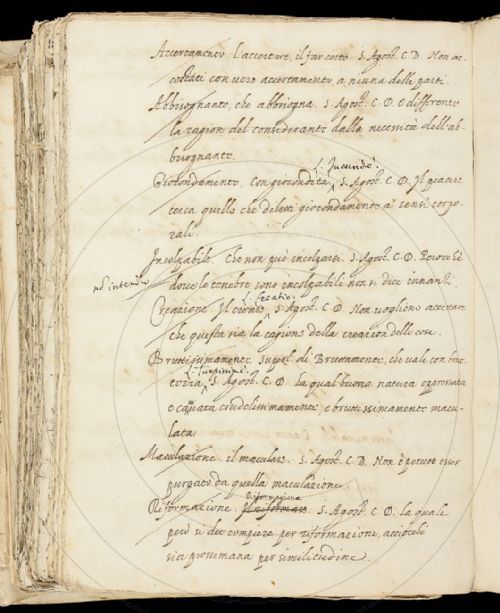 Accertamento. L'accertare, il far certo. S. Agost. C. D. Non ac-
costati con vero accertamento a niuna delle parti.
Abbisognante, che abbisogna. S. Agost. C. D. È differente
la ragion del considerante dalla necessità dell'ab-
bisognante.
L. Jucundè.
Giocondamente. Con giocondità. S. Agost. C. D. Il piacere
cerca quello che diletti giocondamente a' sensi corpo-
rali.
Incolpabile. Che non può incolparsi. S. Agost. C. D. Perocchè
dove le tenebre sono incolpabili non si dice innanzi
L. Creatio.
Creazione. Il creare. S. Agost. C. D. Non vogliono accettare
che questa sia la cagione della creazion delle cose.
Bruttissimamente. Superl. di Bruttamente, che vale con brut-
L. Turpissimè.
tezza. S. Agost. C. D. La qual buona natura oppressata
e cavata crudelissimamente, e bruttissimamente macu-
lata.
Maculazione. il maculare. S. Agost. C. D. Non è potuto esser
purgato da quella maculazione.
Riformagione
Riformazione. Il riformare S. Agost. C. D. La quale
però si dee compiere per riformazione, acciocchè
sia prossimana per similitudine.